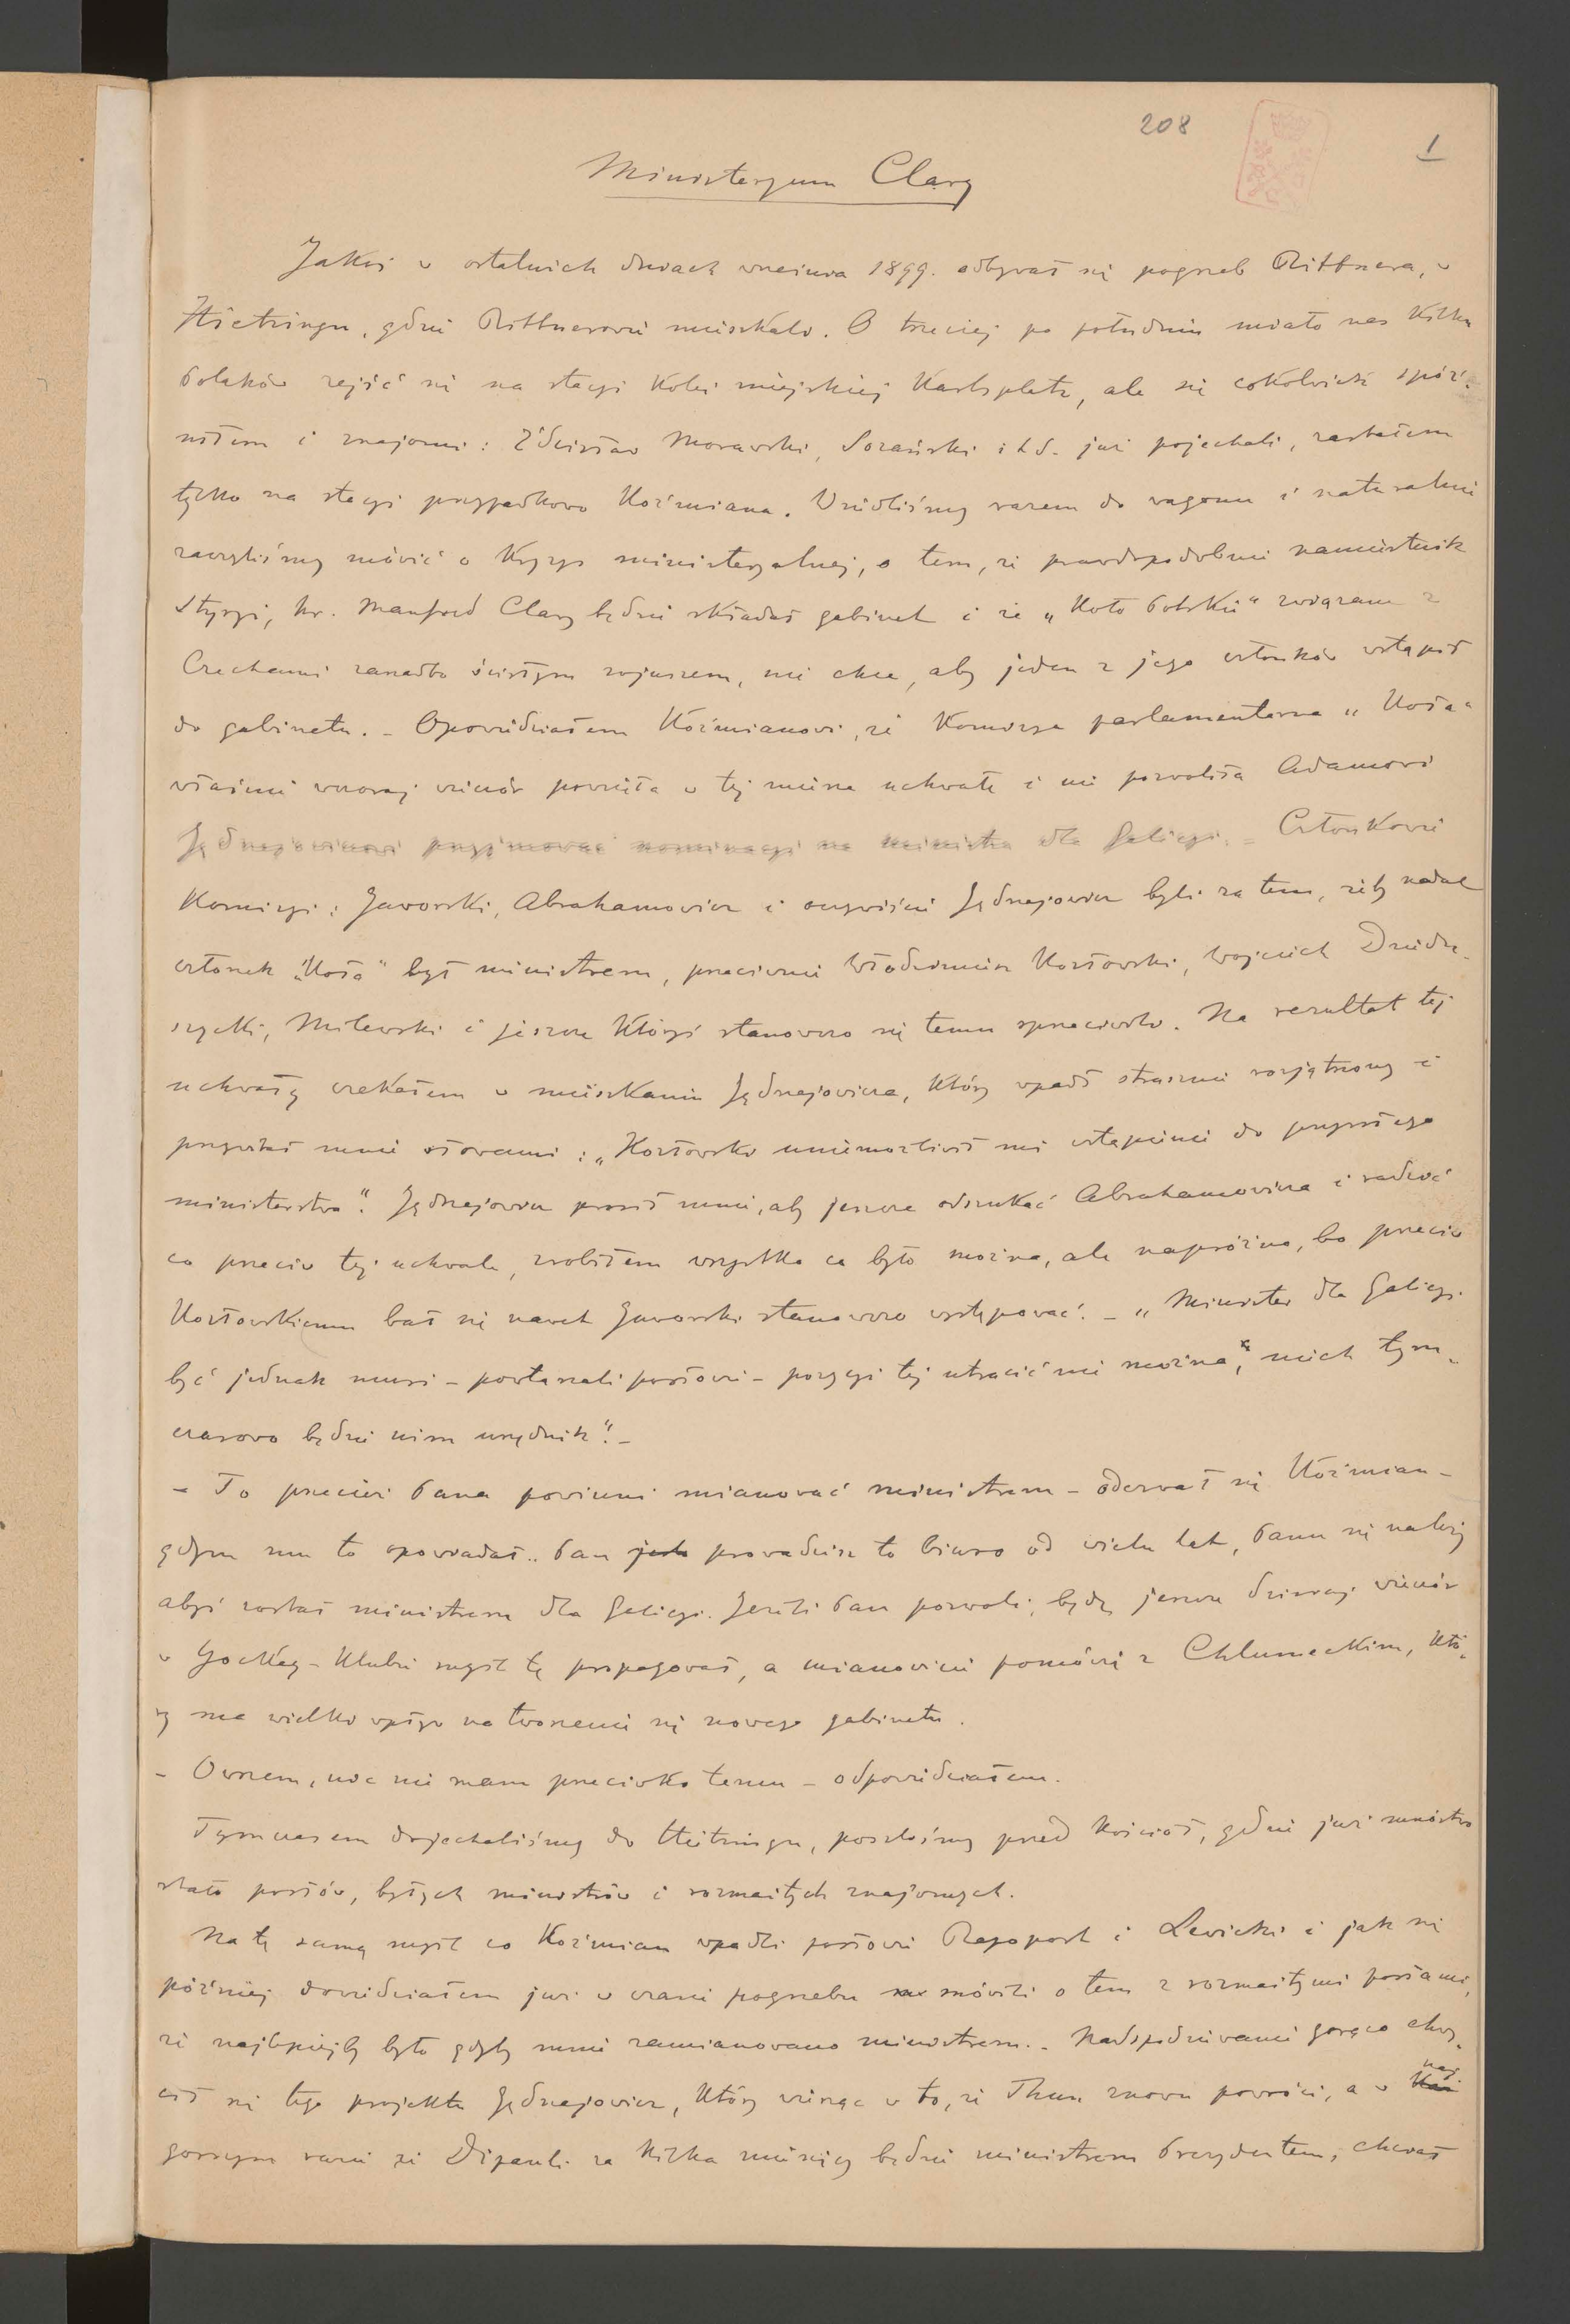 208
1
Ministeryum Clary
Jakoś w ostatnich dniach września 1899. odbywał się pogrzeb Rittnera, w
Hietzingu, gdzie Rittnerowie mieszkali. O trzeciej po południu miało nas kilku
Polaków zejść się na stacyi kolei miejskiej Karlsplatz, ale się cokolwiek spóź-
niłem i znajomi: Zdzisław Morawski, i t.d. już pojechali, zastałem
tylko na stacyi przypadkowo Koźmiana. Wsiedliśmy razem do wagonu i naturalnie
zaczęliśmy mówić o kryzys ministeryalnej, o tem, że prawdopodobnie namiestnik
Styryi, hr. Manfred Clary będzie składał gabinet i że „Koło Polskie" związane z
Czechami zanadto ścisłym sojuszem, nie chce, aby jeden z jego członków wstąpił
do gabinetu. - Opowiedziałem Koźmianowi, że Komisya parlamentarna „Koła"
właśnie wczoraj wieczór powzięła w tej mierze uchwałę i nie pozwoliła Adamowi
Jędrzejowiczowi przyjmować nominacyi na ministra dla Galicyi. - Członkowie
Komisyi: Jaworski, Abrahamowicz i oczywiście Jędrzejowicz byli za tem, żeby nadal
członek „Koła" był ministrem, przeciwnie Włodzimierz Kozłowski, Wojciech Dziedu-
szycki, Milewski i jeszcze któryś stanowczo się temu sprzeciwili. Na rezultat tej
uchwały czekałem w mieszkaniu Jędrzejowicza, który wpadł strasznie rozjątrzony i
przywitał mnie słowami: „Kozłowski uniemożliwił mi wstąpienie do przyszłego
ministerstwa". Jędrzejowicz prosił mnie, aby jeszcze odszukać Abrahamowicza i radzić
co przeciw tej uchwale, zrobiłem wszystko co było można, ale napróżno, bo przeciw
Kozłowskiemu bał się nawet Jaworski stanowczo występować. - „Minister dla Galicyi
być jednak musi - powtarzali posłowie - pozycyi tej utracić nie można, niech tym-
czasowo będzie nim urzędnik". -
- To przecież Pana powinni mianować ministrem - oderwał się Koźmian -
gdym mu to opowiadał.. Pan prowadzisz to biuro od wielu lat, Panu się należy
abyś został ministrem dla Galicyi. Jeżeli Pan pozwoli, będę jeszcze dzisiaj wieczór
w Jockey-Klubie myśl tę propagował, a mianowicie pomówię z Chlumeckim, któ-
ry ma wielki wpływ na tworzenie się nowego gabinetu.
- Owszem, nic nie mam przeciwko temu - odpowiedziałem.
Tymczasem dojechaliśmy do Hietzingu, poszliśmy przed kościół, gdzie już mnóstwo
stało posłów, byłych ministrów i rozmaitych znajomych.
Na tę samą myśl co Koźmian wpadli posłowie Rapoport i Lewicki i jak się
później dowiedziałem już w czasie pogrzebu mówili o tem z rozmaitymi posłami,
że najlepiejby było gdyby mnie zamianowano ministrem. - Nadspodziewanie gorąco chwy-
cił się tego projektu Jędrzejowicz, który wierząc w to, że Thun znowu powróci, a w naj
gorszym razie że Dipauli za kilka miesięcy będzie ministrem Prezydentem, chciał